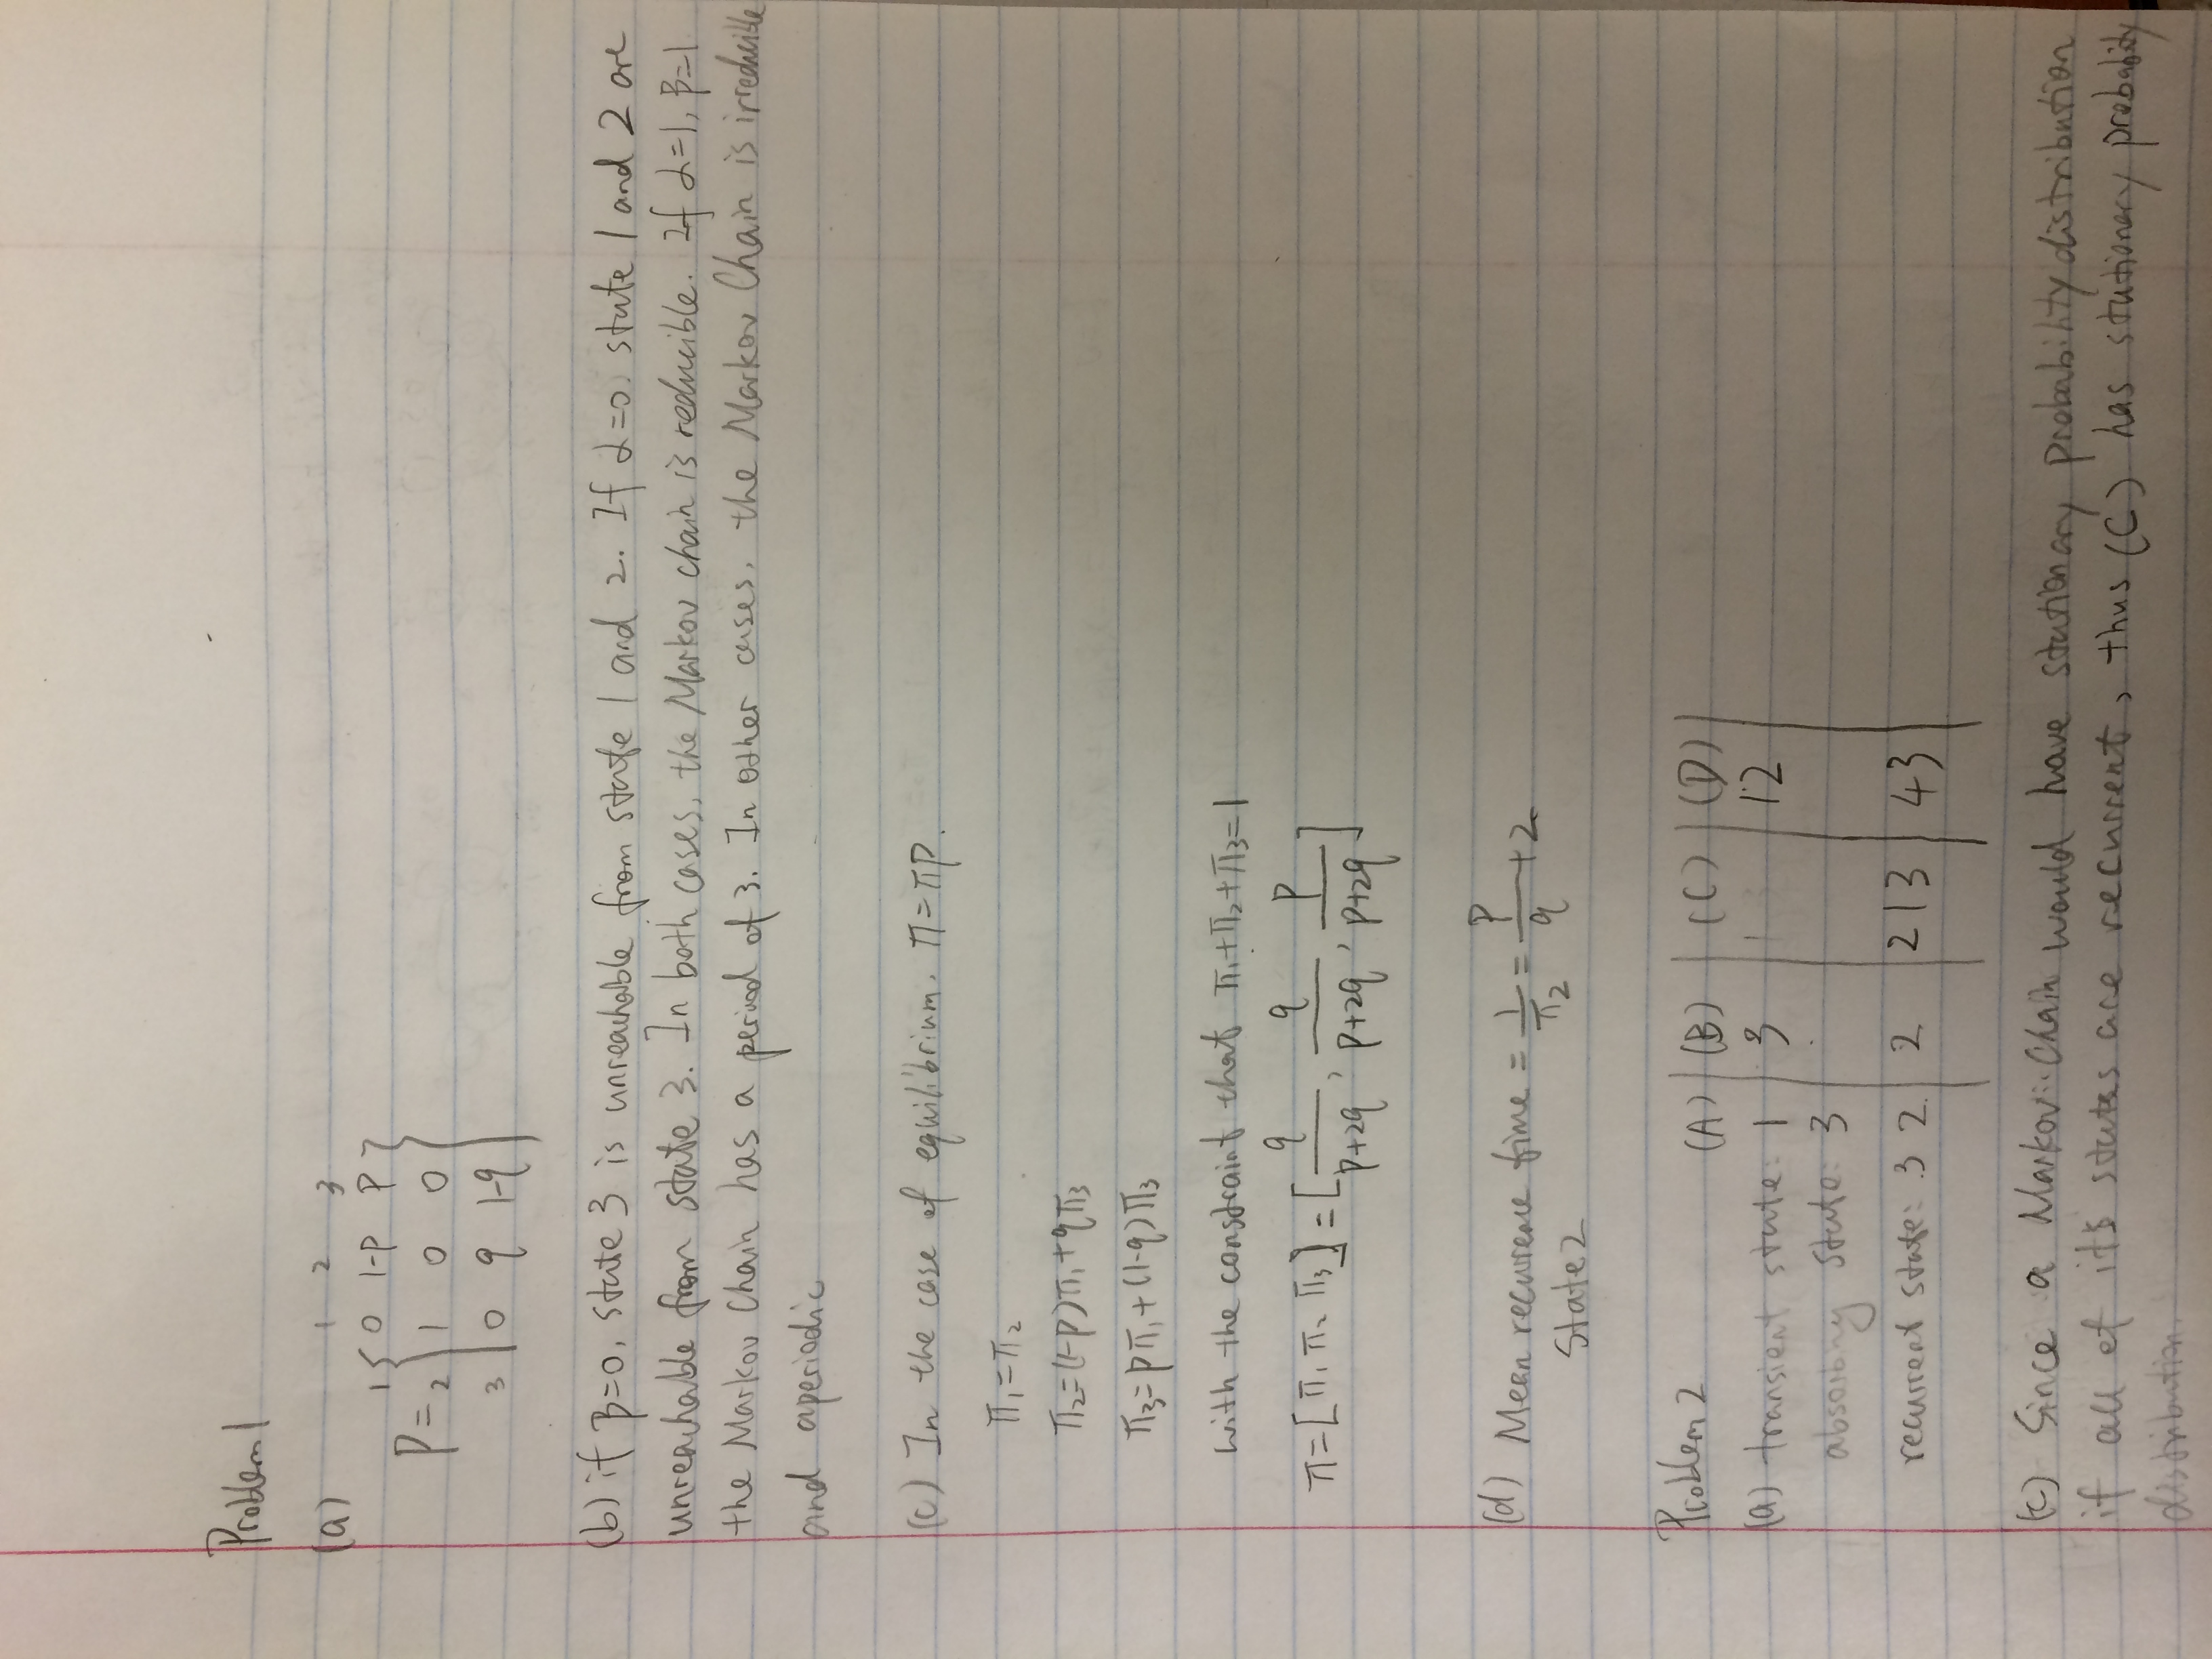 Problem 1
(a) 1 2 3
1 0 1-p p
P= 2 1 0 0
3 0 q 1-q
(b) if β=0, state 3 is unreachable from state 1 and 2. If α=0. state 1 and 2 are
unreachable from state 3. In both cases, the Markov chain is reducible. If α=1, β=1
the Markov Chain has a period of 3. In other cases, the Markov Chain is irreducible
and aperiodic
(c) In the case of equilibrium. π=πp.
π₁=π₂
π₂=(1-p)π₁+qπ₃
π₃=pπ₁+(1-q)π₃
with the constraint that π₁+π₂+π₃=1
π=[π₁ π₂ π₃]=[q/(p+2q), q/(p+2q), p/(p+2q)]
(d) Mean recurrence time = 1/π₂ = p/q +2
State 2
Problem 2 (A) | (B) | (C) | (D) |
(a) transient state: 1 | 3 | | 1 2 |
absorbing state: 3
recurrent state: 3 2. | 2 | 2 1 3 | 4 3 |
(c) Since a Markov Chain would have stationary probability distribution
if all of it's states are recurrent, thus (C) has stationary probability
distribution.